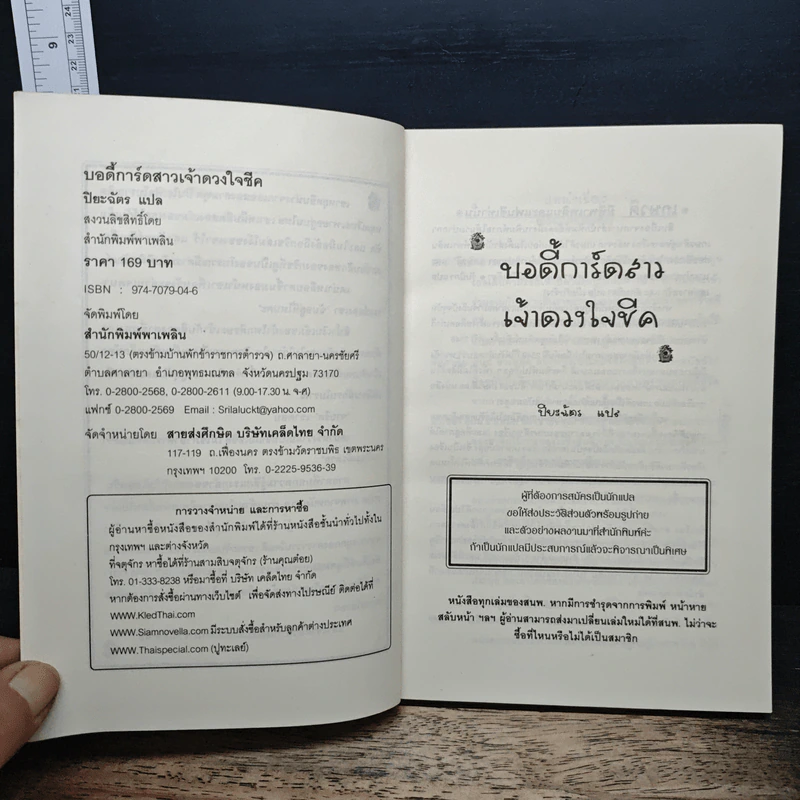 9
24
23
22
21
บอดี้การ์ดสาวเจ้าดวงใจชีค
ปิยะฉัตร แปล
สงวนลิขสิทธิ์โดย
สำนักพิมพ์พาเพลิน
ราคา 169 บาท
ISBN : 974-7079-04-6
จัดพิมพ์โดย
สำนักพิมพ์พาเพลิน
50/12-13 (ตรงข้ามบ้านพักข้าราชการตำรวจ) ถ.ศาลายา-นครชัยศรี
ตำบลศาลายา อำเภอพุทธมณฑล จังหวัดนครปฐม 73170
โทร. 0-2800-2568, 0-2800-2611 (9.00-17.30 น. จ-ศ)
แฟกซ์ 0-2800-2569 Email : Srilaluckt@yahoo.com
จัดจำหน่ายโดย สายส่งศึกษิต บริษัทเคล็ดไทย จำกัด
117-119 ถ.เฟื่องนคร ตรงข้ามวัดราชบพิธ เขตพระนคร
กรุงเทพฯ 10200 โทร. 0-2225-9536-39
การวางจำหน่าย และการหาซื้อ
ผู้อ่านหาซื้อหนังสือของสำนักพิมพ์ได้ที่ร้านหนังสือชั้นนำทั่วไปทั้งใน
กรุงเทพฯ และต่างจังหวัด
ที่จตุจักร หาซื้อได้ที่ร้านสามสิบจตุจักร (ร้านคุณต๋อย)
โทร. 01-333-8238 หรือมาซื้อที่ บริษัท เคล็ดไทย จำกัด
หากต้องการสั่งซื้อผ่านทางเว็บไซต์ เพื่อจัดส่งทางไปรษณีย์ ติดต่อได้ที่
WWW.KledThai.com
WWW.Siamnovella.com มีระบบสั่งซื้อสำหรับลูกค้าต่างประเทศ
WWW.Thaispecial.com (ปูทะเลย์)
บอดี้การ์ดสาว
เจ้าดวงใจชีค
ปิยะฉัตร แปล
ผู้ที่ต้องการสมัครเป็นนักแปล
ขอให้ส่งประวัติส่วนตัวพร้อมรูปถ่าย
และตัวอย่างผลงานมาที่สำนักพิมพ์ค่ะ
ถ้าเป็นนักแปลมีประสบการณ์แล้วจะพิจารณาเป็นพิเศษ
หนังสือทุกเล่มของสนพ. หากมีการชำรุดจากการพิมพ์ หน้าหาย
สลับหน้า ฯลฯ ผู้อ่านสามารถส่งมาเปลี่ยนเล่มใหม่ได้ที่สนพ. ไม่ว่าจะ
ซื้อที่ไหนหรือไม่ได้เป็นสมาชิก